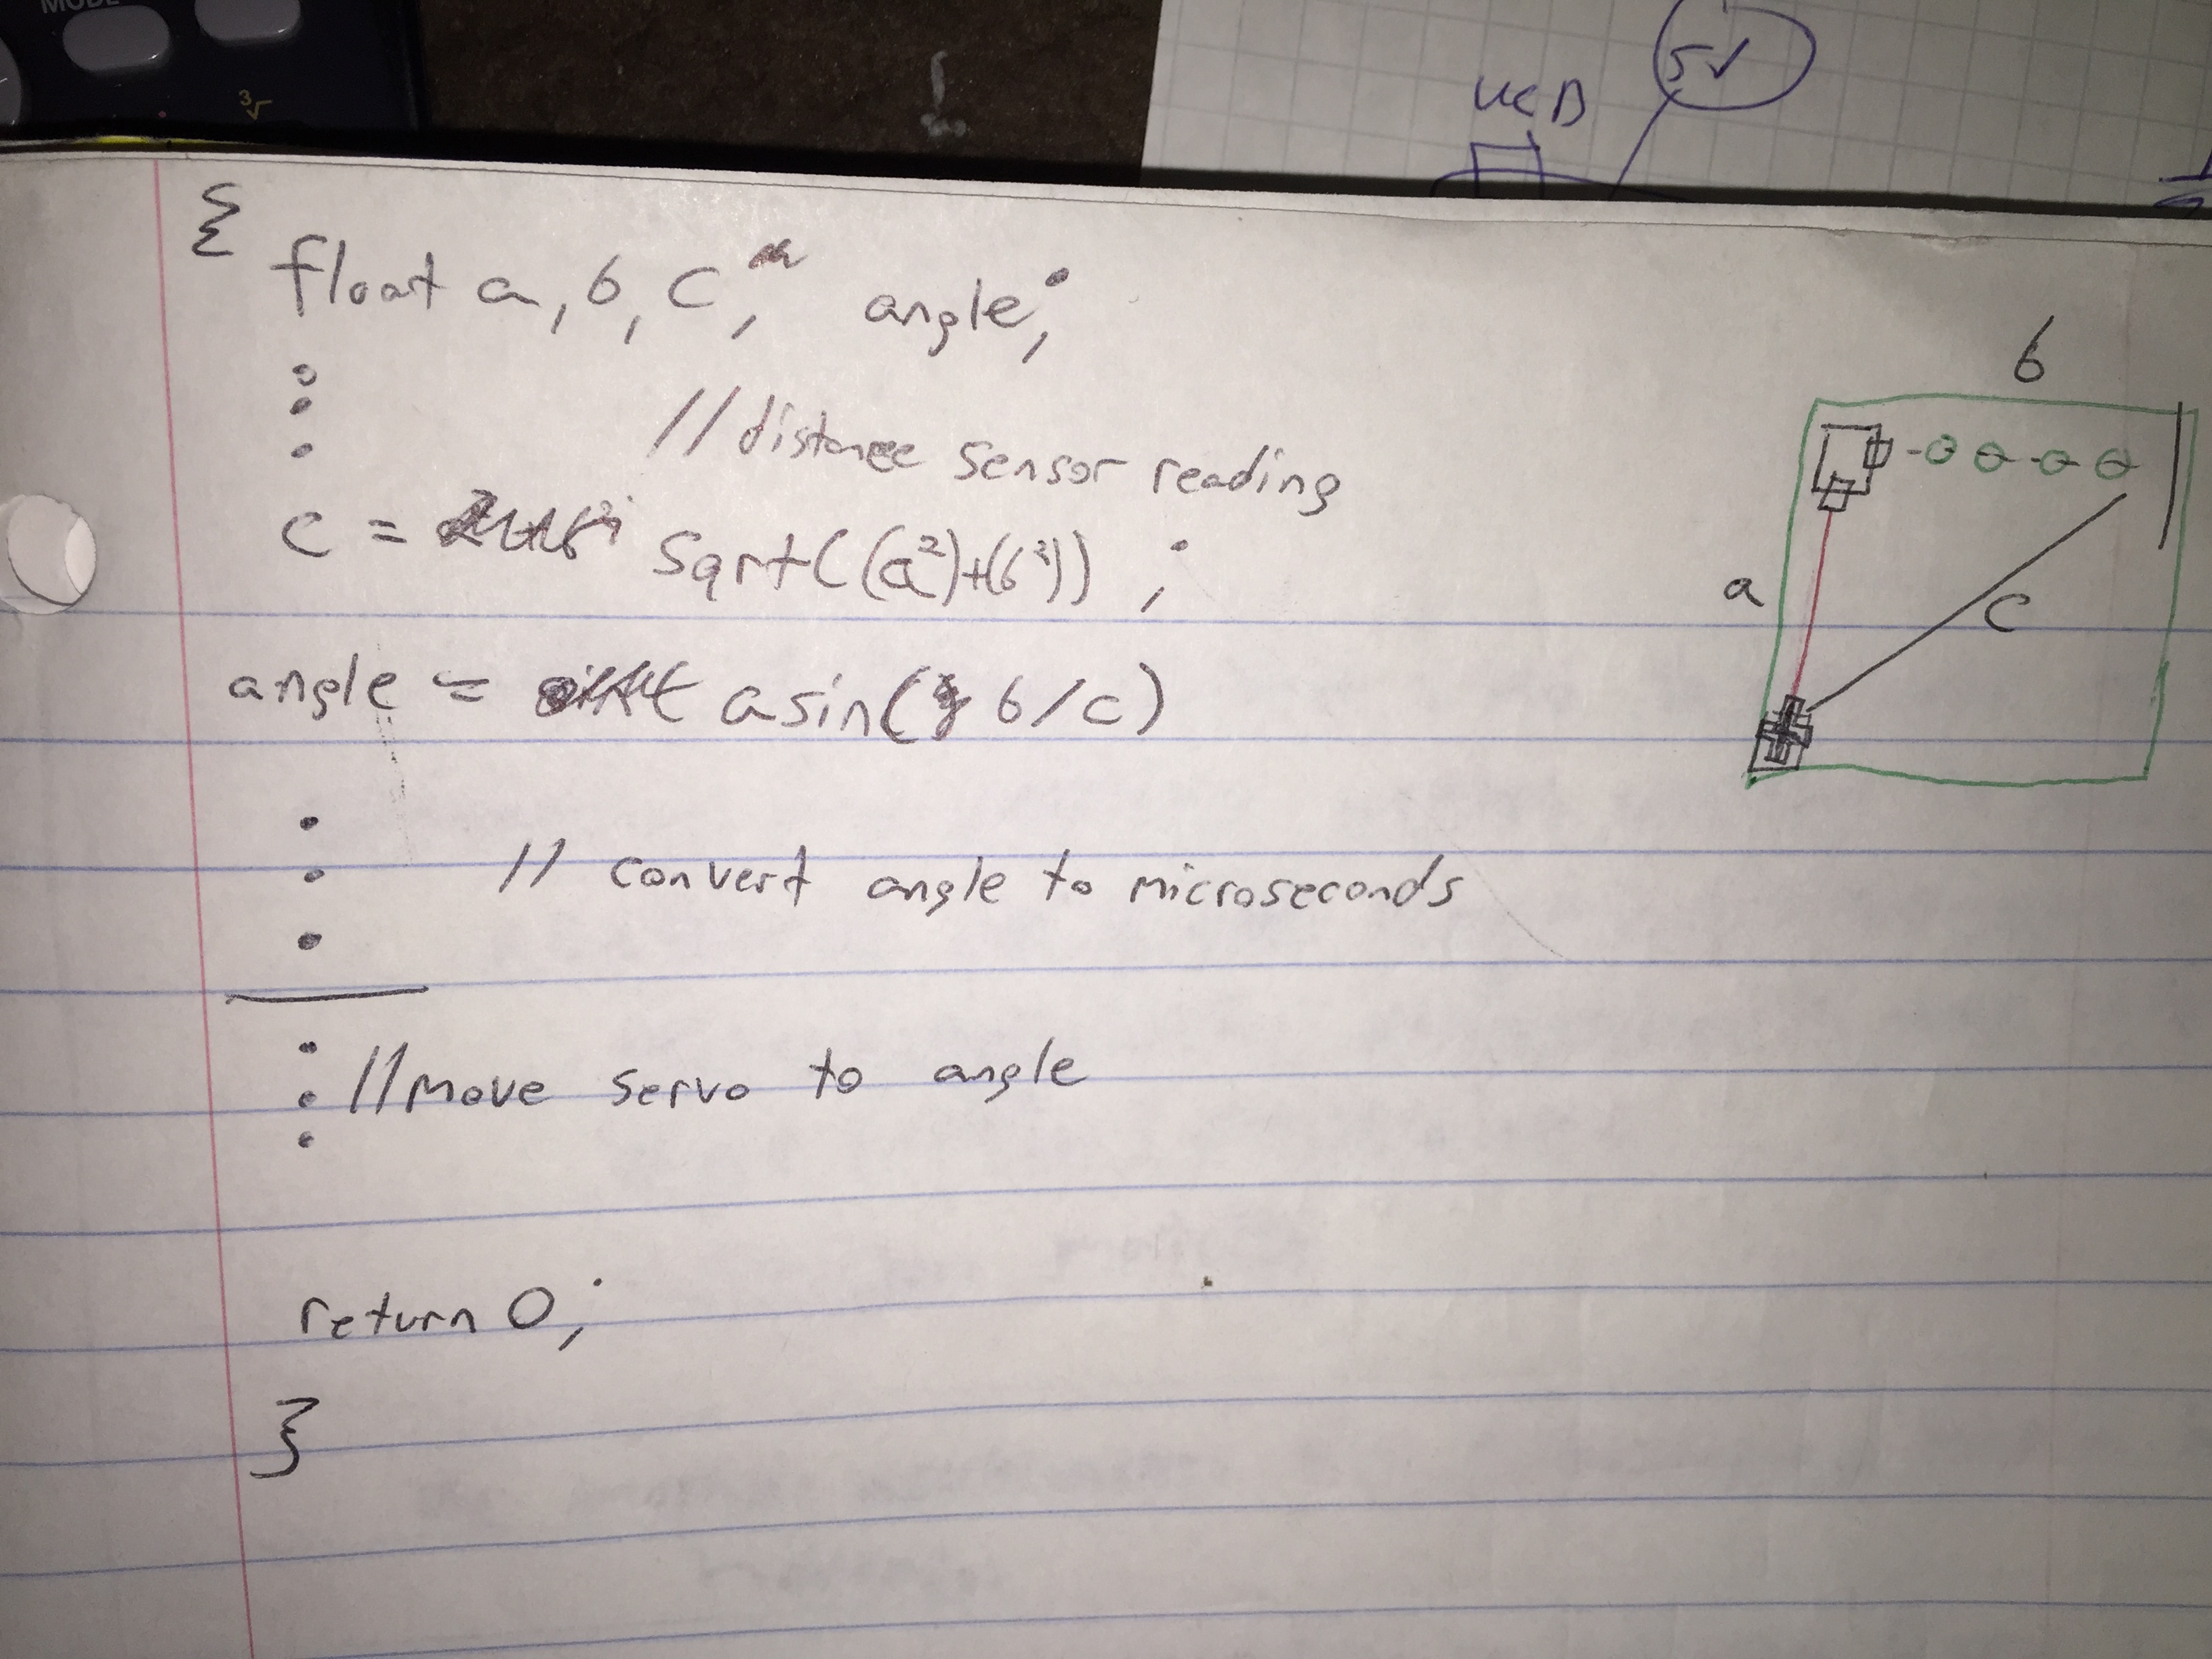 MODE
³√
UCB
5V
{
float a, b, c, angle;
// distance sensor reading
c = sqrt((a²)+(b²));
angle = asin( b/c)
// convert angle to microseconds
// move servo to angle
return 0;
}
b
a
c